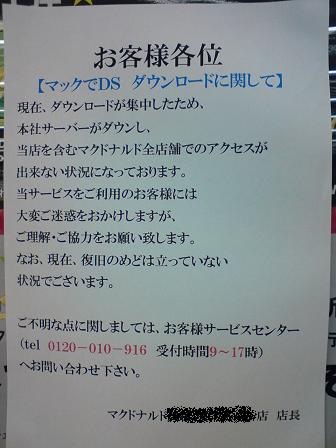 お客様各位
【マックでDS ダウンロードに関して】
現在、ダウンロードが集中したため、
本社サーバーがダウンし、
当店を含むマクドナルド全店舗でのアクセスが
出来ない状況になっております。
当サービスをご利用のお客様には
大変ご迷惑をおかけしますが、
ご理解・ご協力をお願い致します。
なお、現在、復旧のめどは立っていない
状況でございます。
ご不明な点に関しましては、お客様サービスセンター
(tel 0120-010-916 受付時間9~17時)
へお問い合わせ下さい。
マクドナルド 店 店長